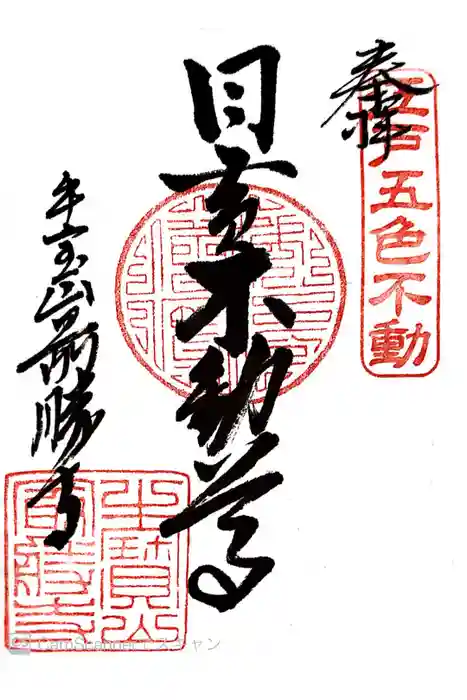 奉拝
江戸五色不動
目黄不動尊
牛宝山最勝寺
牛寳山
最勝寺
CamScannerでスキャン